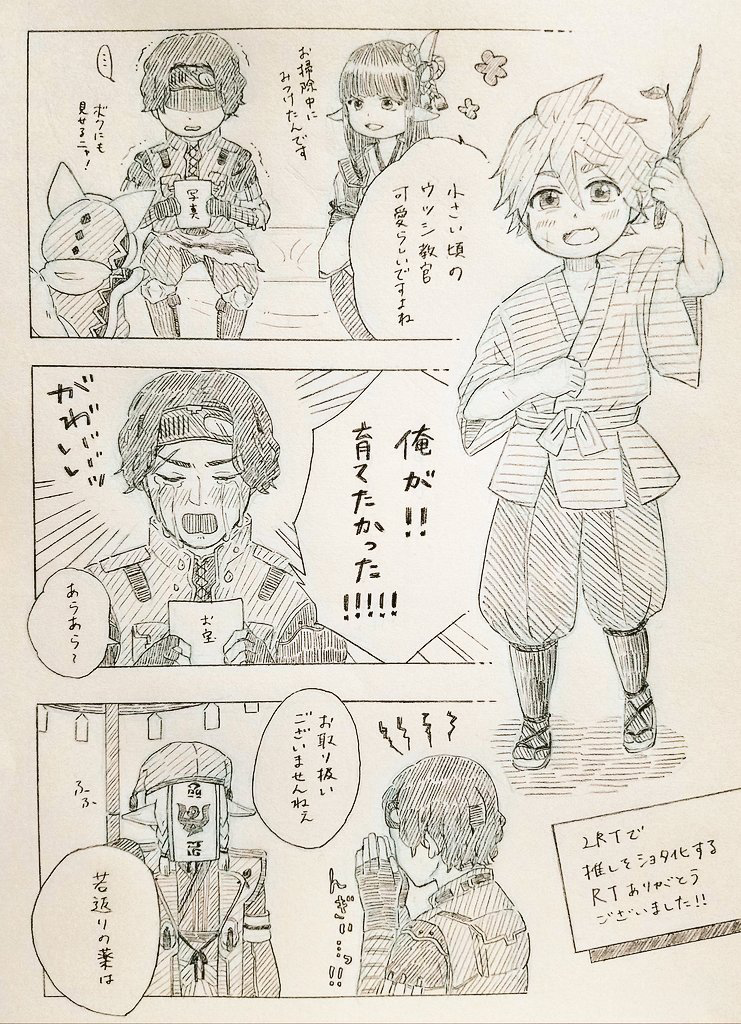 小さい頃の
ウツシ教官
可愛らしいですよね
お掃除中に
みつけたんです
…
写真
ボクにも
見せるニャ!
俺が!!
育てたかった!!!!!
お宝
あらあら〜
お取り扱い
ございませんねえ
んぎぃ…っ!!
ふふ
若返りの薬は
2RTで
推しをショタ化する
RTありがとう
ございました!!